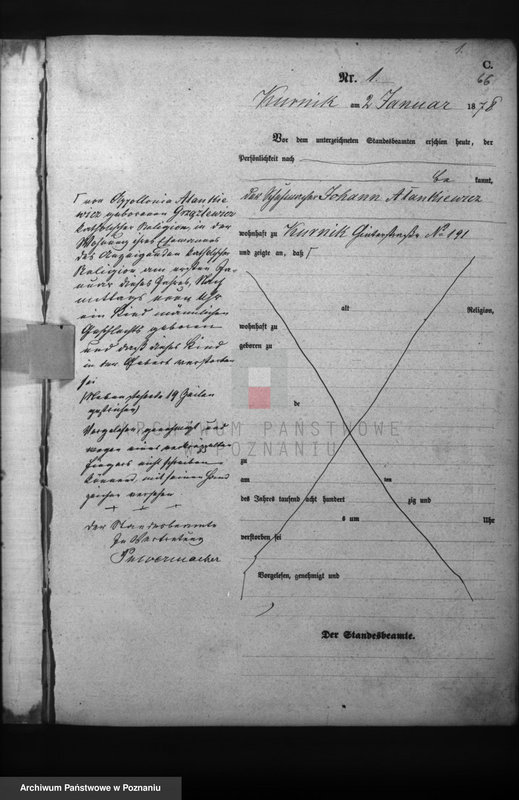 1.
C.
Nr. 1.
66
Kurnik am 2 Januar 1878
Vor dem unterzeichneten Standesbeamten erschien heute, der
Persönlichkeit nach
be kannt,
der Johann Atankiewicz
wohnhaft zu Kurnik Hinterstraße No 191
und zeigte an, daß
alt Religion,
wohnhaft zu
geboren zu
de
zu
am ten
des Jahres tausend acht hundert zig und
s um Uhr
verstorben sei
Vorgelesen, genehmigt und
Der Standesbeamte.
von Appollonia Atankie
wicz geborenen
katholischer Religion, in der
Wohnung ihres Ehemannes
des Anzeigenden katholischer
Religion am ersten Ja-
nuar dieses Jahres, Nach
mittags Uhr
ein Kind männlichen
Geschlechts geboren
und daß dieses Kind
in der Geburt verstorben
sei
Nebenstehende 19 Zeilen
gestrichen)
Vorgelesen, genehmigt und
wegen eines
Fingers nicht schreiben
können, mit seinen Hand
zeichen versehen
+ + +
Der Standesbeamte
In Vertretung
ARCHIWUM PAŃSTWOWE
W POZNANIU
Archiwum Państwowe w Poznaniu